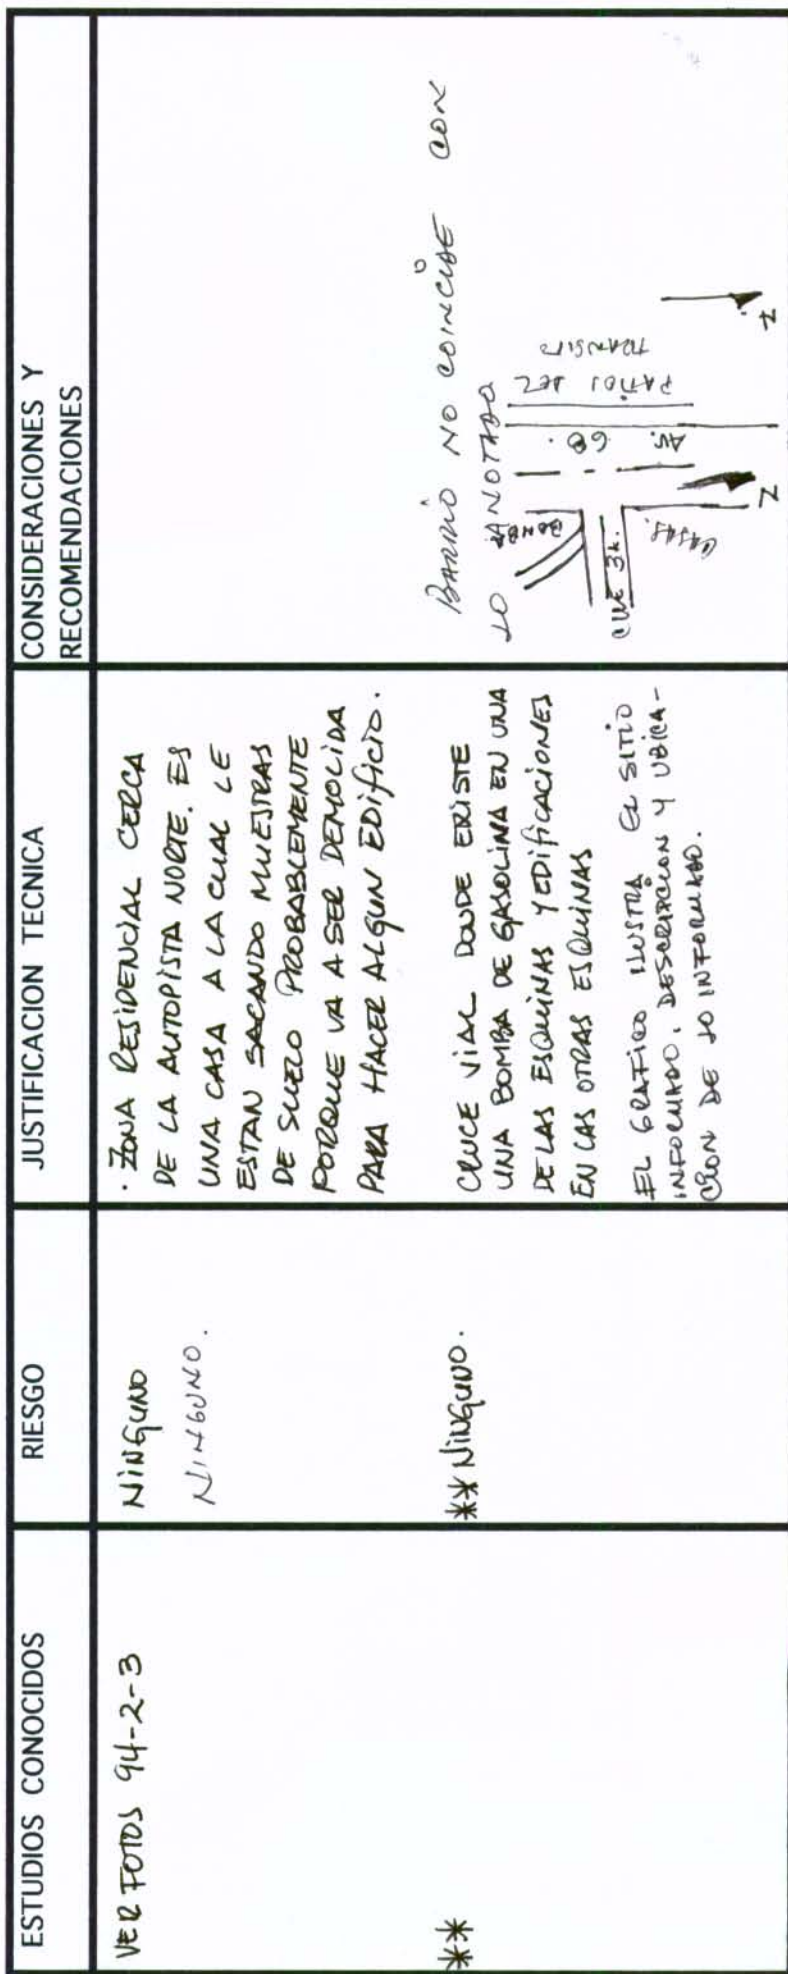 ESTUDIOS CONOCIDOS
RIESGO
JUSTIFICACION TECNICA
CONSIDERACIONES Y
RECOMENDACIONES
VER FOTOS 94-2-3
NINGUNO
NINGUNO.
. ZONA RESIDENCIAL CERCA
DE LA AUTOPISTA NORTE. ES
UNA CASA A LA CUAL LE
ESTAN SACANDO MUESTRAS
DE SUELO PROBABLEMENTE
PORQUE VA A SER DEMOLIDA
PARA HACER ALGUN EDIFICIO.
**
** NINGUNO.
CRUCE VIAL DONDE EXISTE
UNA BOMBA DE GASOLINA EN UNA
DE LAS ESQUINAS Y EDIFICACIONES
EN LAS OTRAS ESQUINAS
EL GRAFICO ILUSTRA EL SITIO
INFORMADO, DESCRIPCION Y UBICA-
CION DE LO INFORMADO.
BARRIO NO COINCIDE CON
LO ANOTADO
BOMBA
CLLE 3A.
CASAS.
AV. 68.
PATIOS DEL
TRANSITO
N
N